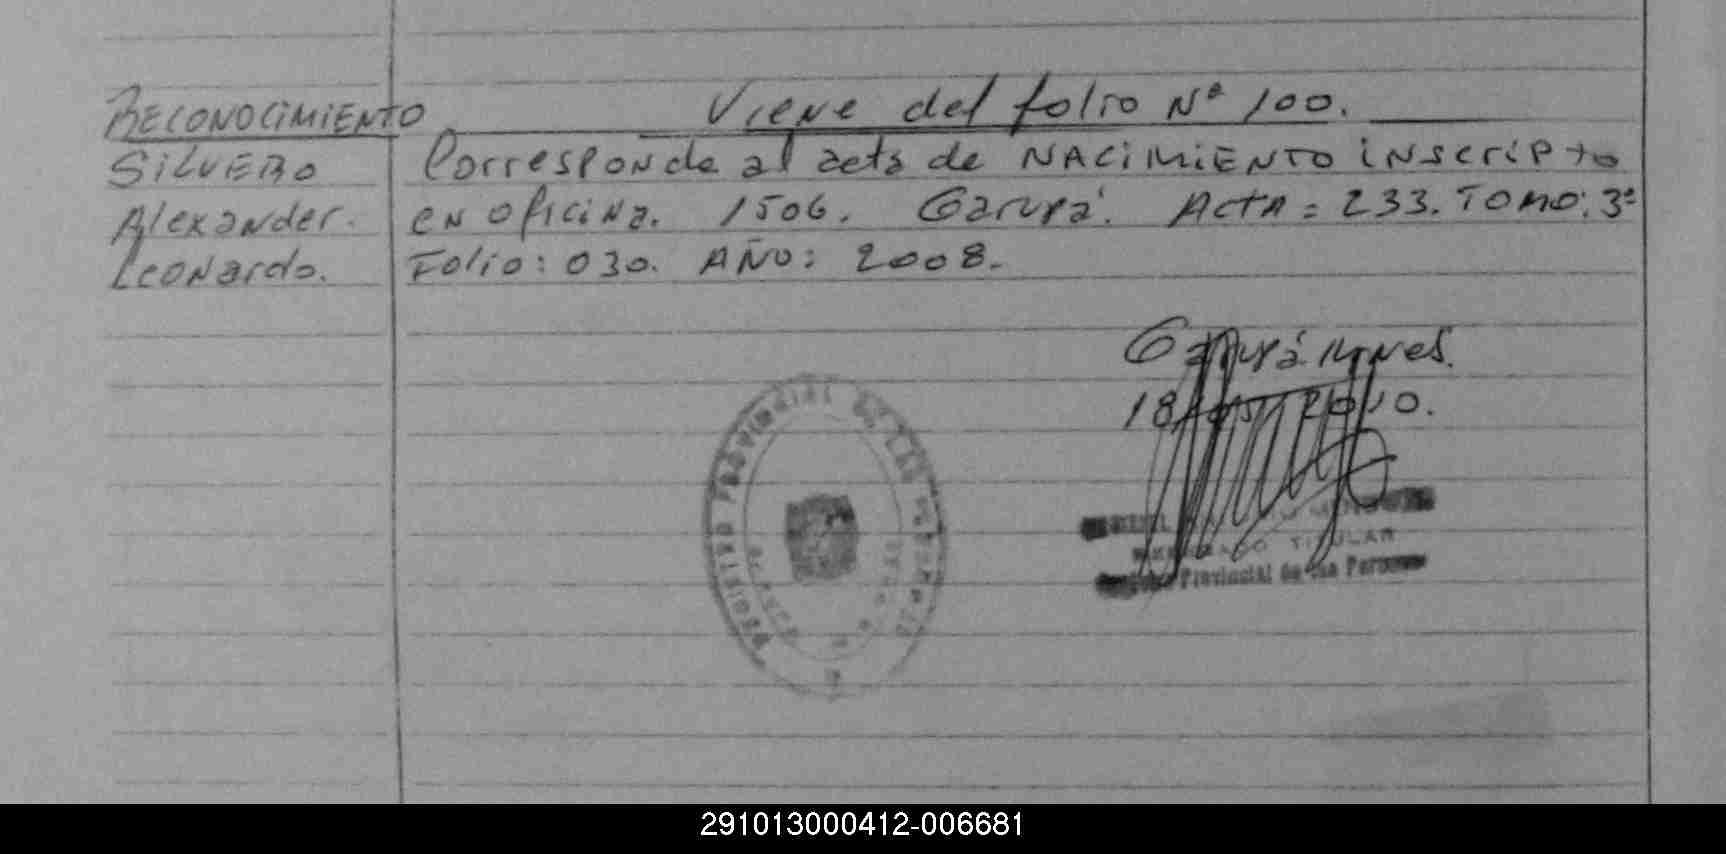 RECONOCIMIENTO
SILVERO
Alexander.
Leonardo.
Viene del folio Nº 100.
Corresponde al acta de NACIMIENTO inscripto
en oficina. 1506. Garupá. Acta = 233. Tomo: 3º
Folio: 030. AÑO: 2008.
Garupá Mnes.
18 2010.
TITULAR
Provincial de las Personas
REGISTRO PROVINCIAL DE LAS PERSONAS
291013000412-006681